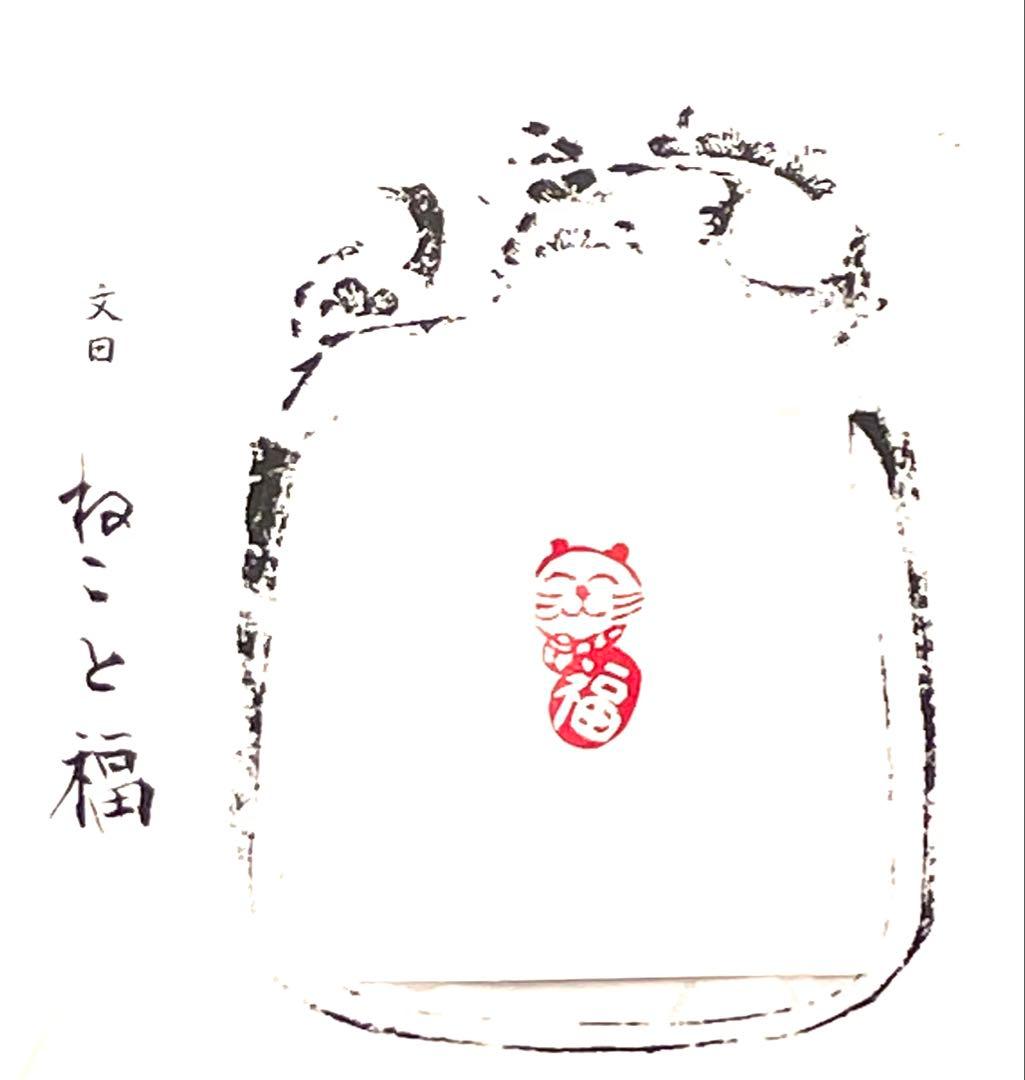 文曰
ねこと福
福